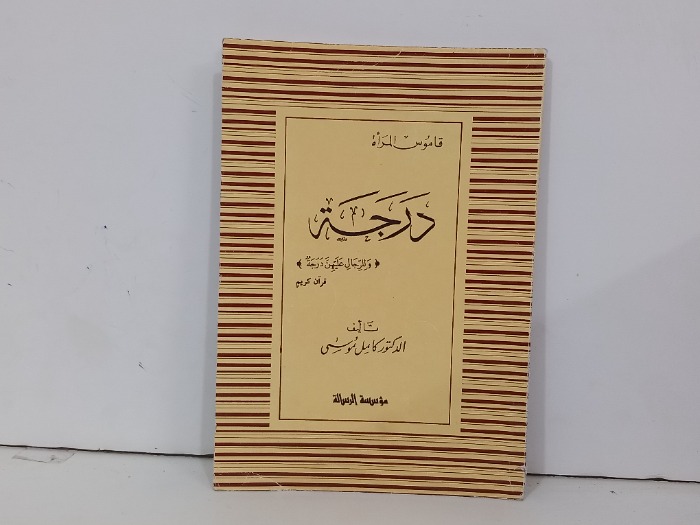 قاموس المرأة
دَرَجَة
﴿ وَلِلرِّجَالِ عَلَيْهِنَّ دَرَجَةٌ ﴾
قرآن كريم
تأليف
الدكتور كامِل مُوسى
مؤسسة الرسالة